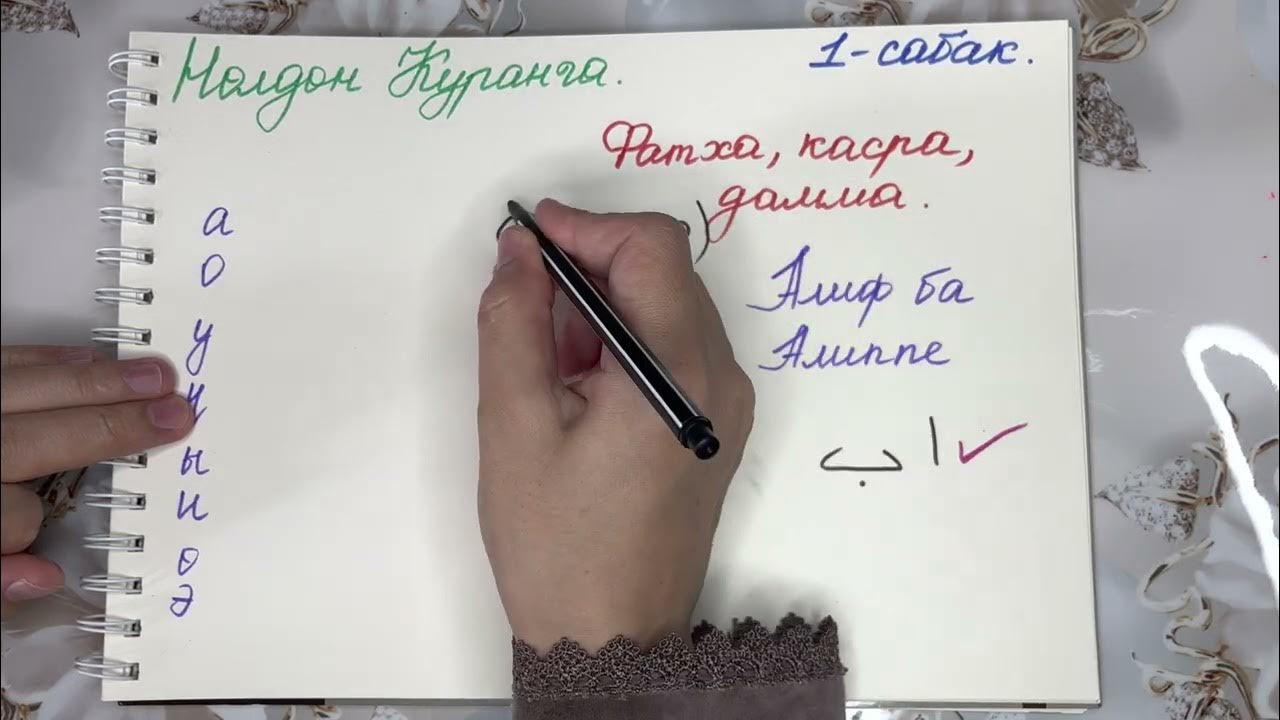 Нолдон Куранга.
1-сабак.
Фатха, касра,
дамма.
а
о
у
ү
ы
и
ө
э
Алиф ба
Алиппе
ا ب